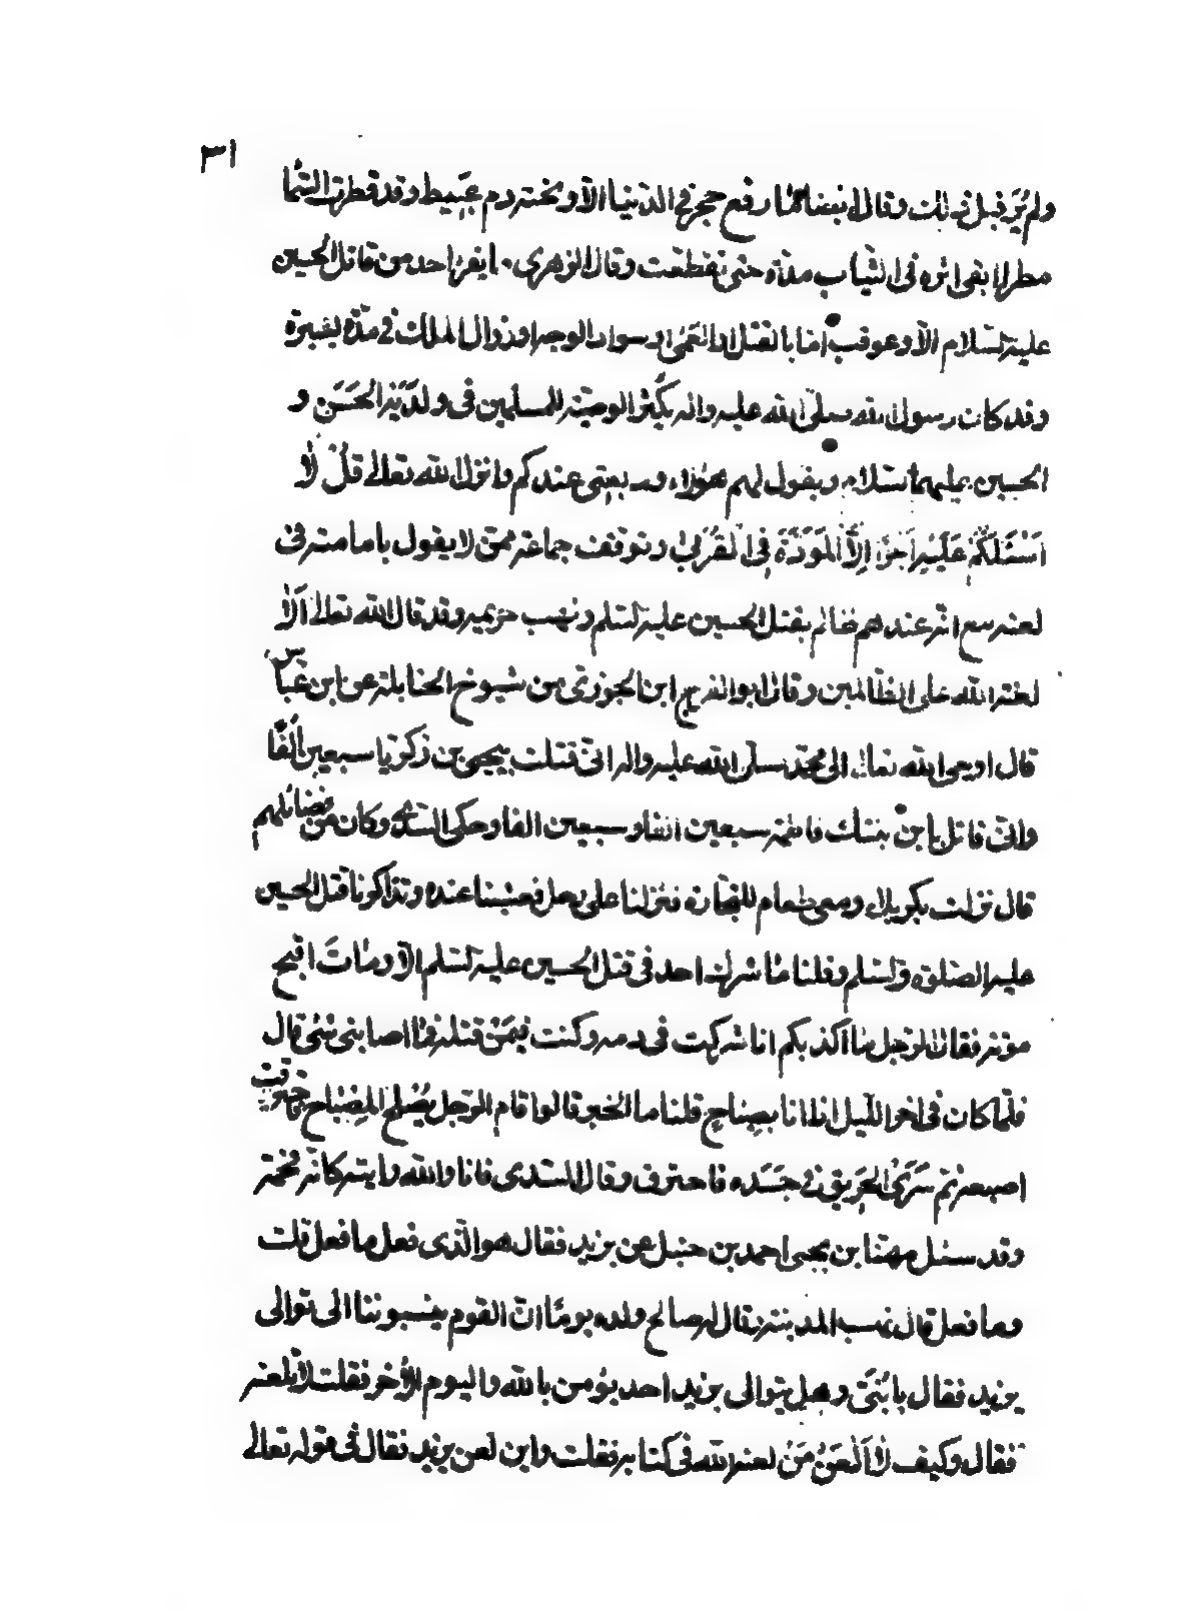 ٣١
ولم يُرَ قبل ذلك وقال ايضا ما رفع حجر في الدنيا الّا وتحته دم عَبيط وقد قطرت السّما
مطرا بقى اثره فى الثياب مدّة حتى تقطعت وقال الزهرى ما بقى احد من قاتل الحسين
عليه السّلام الّا وعوقب امّا بالقتل او العَمىٰ او سواد الوجه او زوال الملك فى مدّة يسيرة
وقد كان رسول الله صلّى الله عليه واله يُكثر الوصيّة للمسلمين فى ولدَيْه الحَسَن و
الحسين عليهما السّلام ويقول لهم هؤلاء وديعتى عندكم وانزل الله تعالى قُلْ لٰا
اَسْئَلُكُمْ عَلَيْهِ اَجْرًا اِلَّا الْمَوَدَّةَ فِى الْقُرْبىٰ وتوقف جماعة ممّن لا يقول بامامته فى
لعنه مع انّه عندهم ظالم بقتل الحسين عليه السّلم ونهب حريمه وقد قال الله تعالى اَلٰا
لعنة الله على الظالمين وقال ابو الفرج ابن الجوزى من شيوخ الحنابلة عن ابن عَبّاس
قال اوحى الله تعالى الى محمّد صلّى الله عليه واله انّى قتلت بيحيى بن زكريّا سبعين اَلْفًا
وانّى قاتل بابن بنتك فاطمة سبعين الفا وسبعين الفا وحكى السّدّى وكان من فضلائهم
قال نزلت بكربلاء ومعى طعام للتجارة فنزلنا على رجل فتعشينا عنده وتذاكرنا قتل الحسين
عليه الصّلوة والسّلم وقلنا ما شرك احد فى قتل الحسين عليه السّلم الّا ومات اقبح
موتة فقال الرّجل ما اكذبكم انا شركت فى دمه وكنت فيمَنْ قتله فما اصابنى شئ قال
فلمّا كان فى اخر اللّيل اذا انا بصياح قلنا ما الخبر قالوا قام الرّجل يُصْلح المِصْباح فاحترقت
اصبعه ثم سَرَى الحَريق فى جَسَده فاحترق وقال السّدى فانا والله رايته كانّه فحمة
وقد سئل مهنّا بن يحيى احمد بن حنبل عن يزيد فقال هو الّذى فعل ما فعل قلت
وما فعل قال نهب المدينة فقال له صالح ولده يومًا انّ القوم ينسبوننا الى توالى
يزيد فقال يا بُنَىّ وهل يتوالى يزيد احد يؤمن بالله واليوم الأخر فقلت لِمَ لا تلعنه
فقال وكيف لٰا اَلْعَنُ مَنْ لعنه الله فى كتابه فقلت واين لعن يزيد فقال فى قوله تعالى